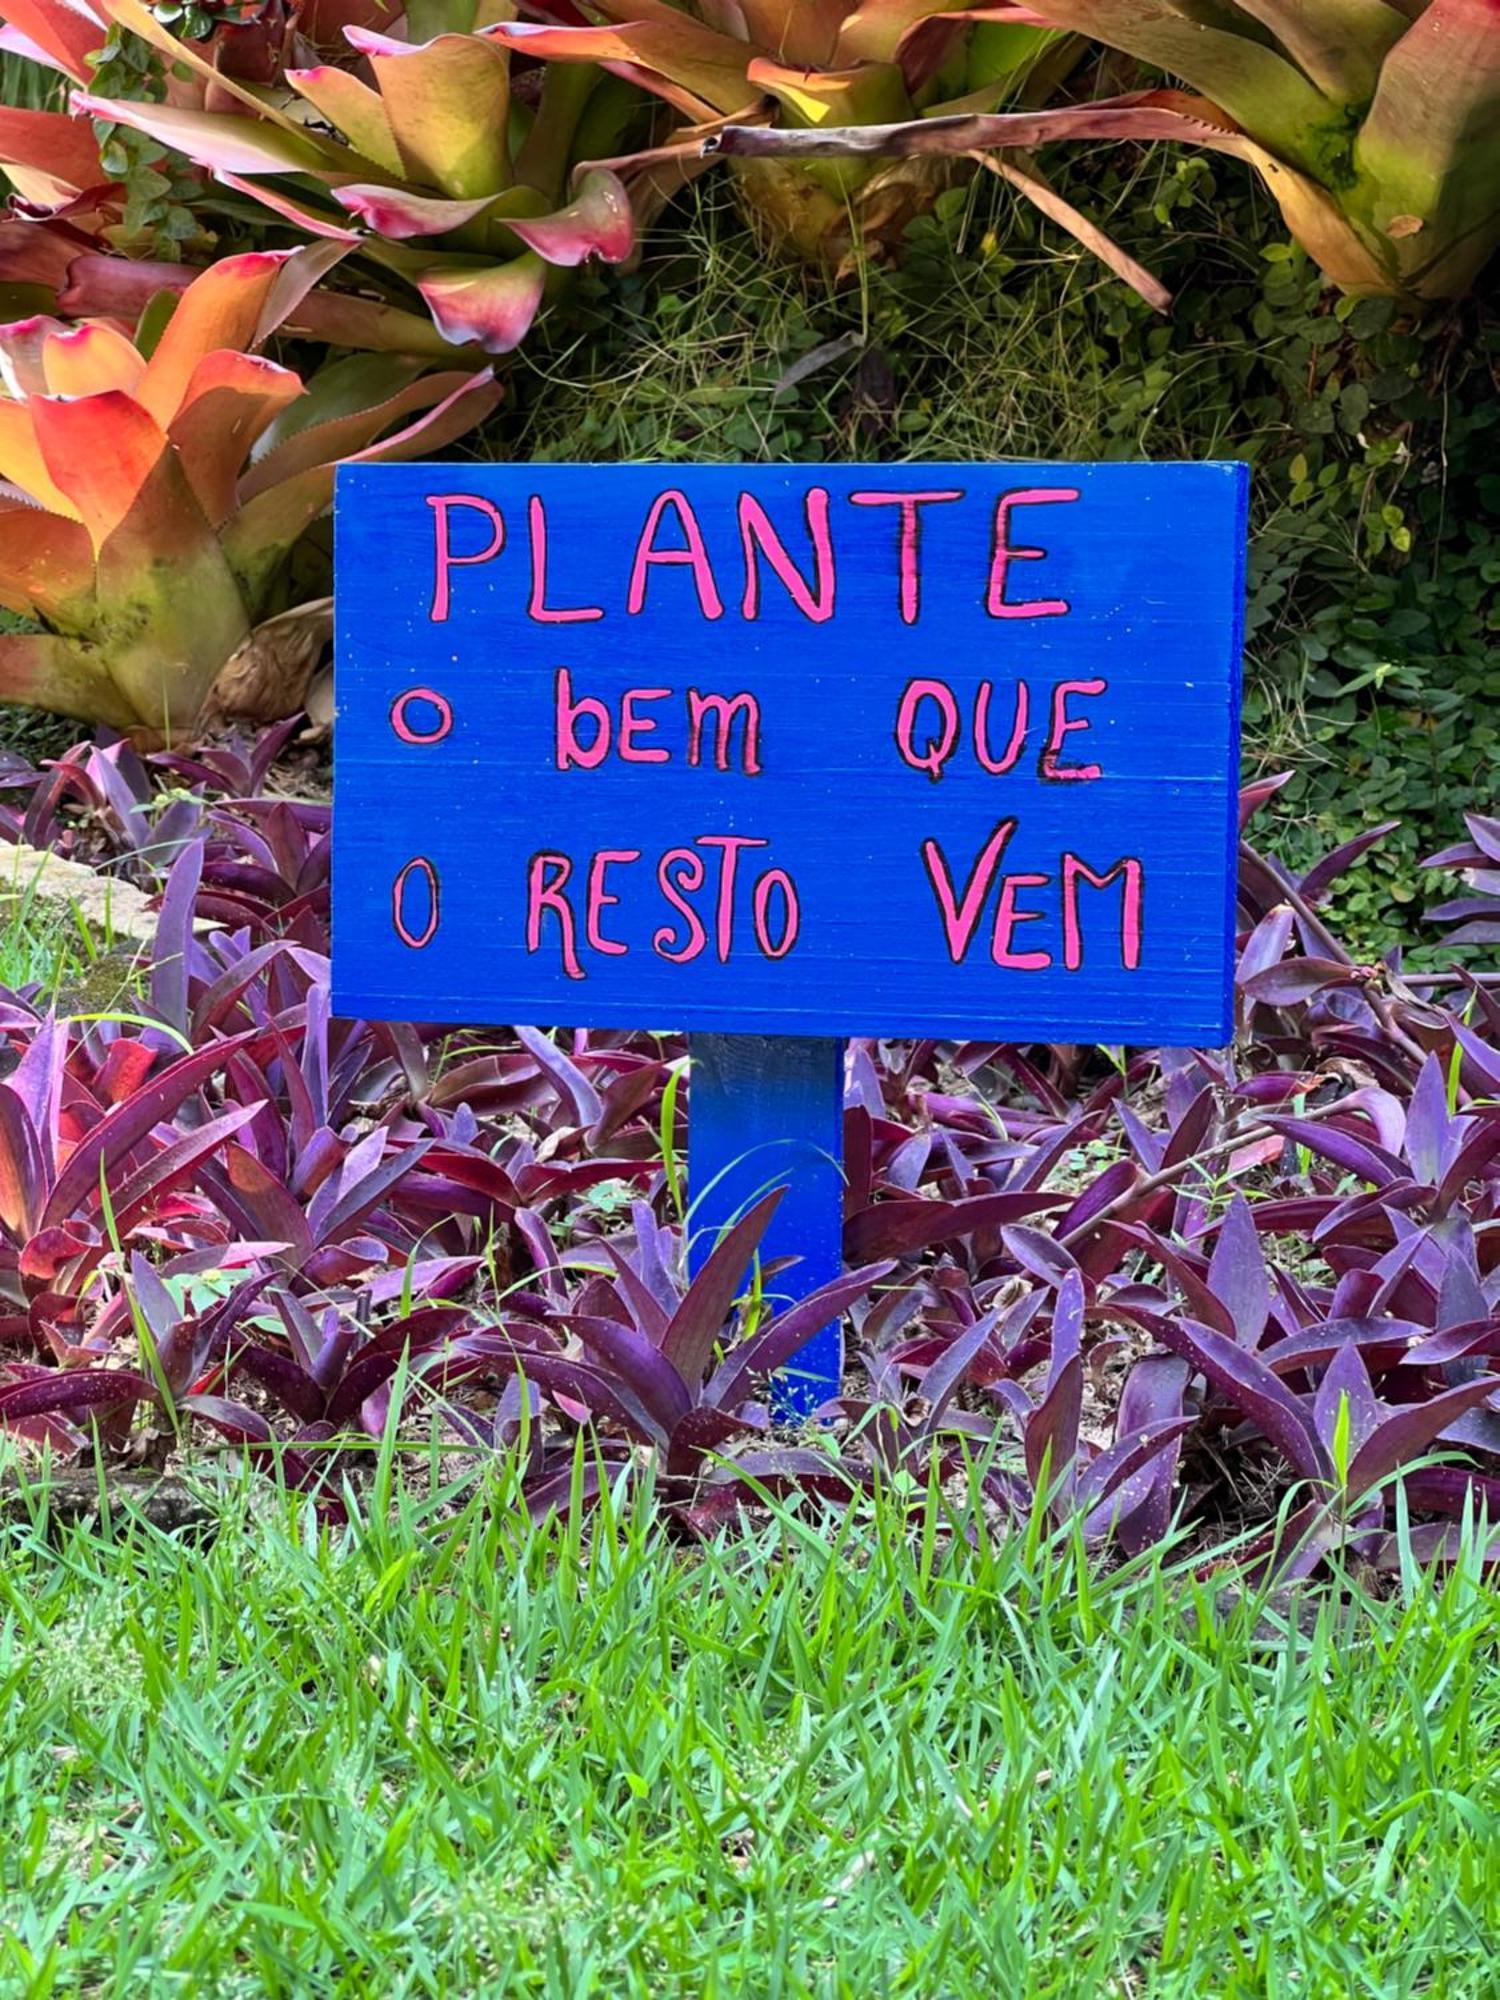 PLANTE
O bEM QUE
O RESTO VEM